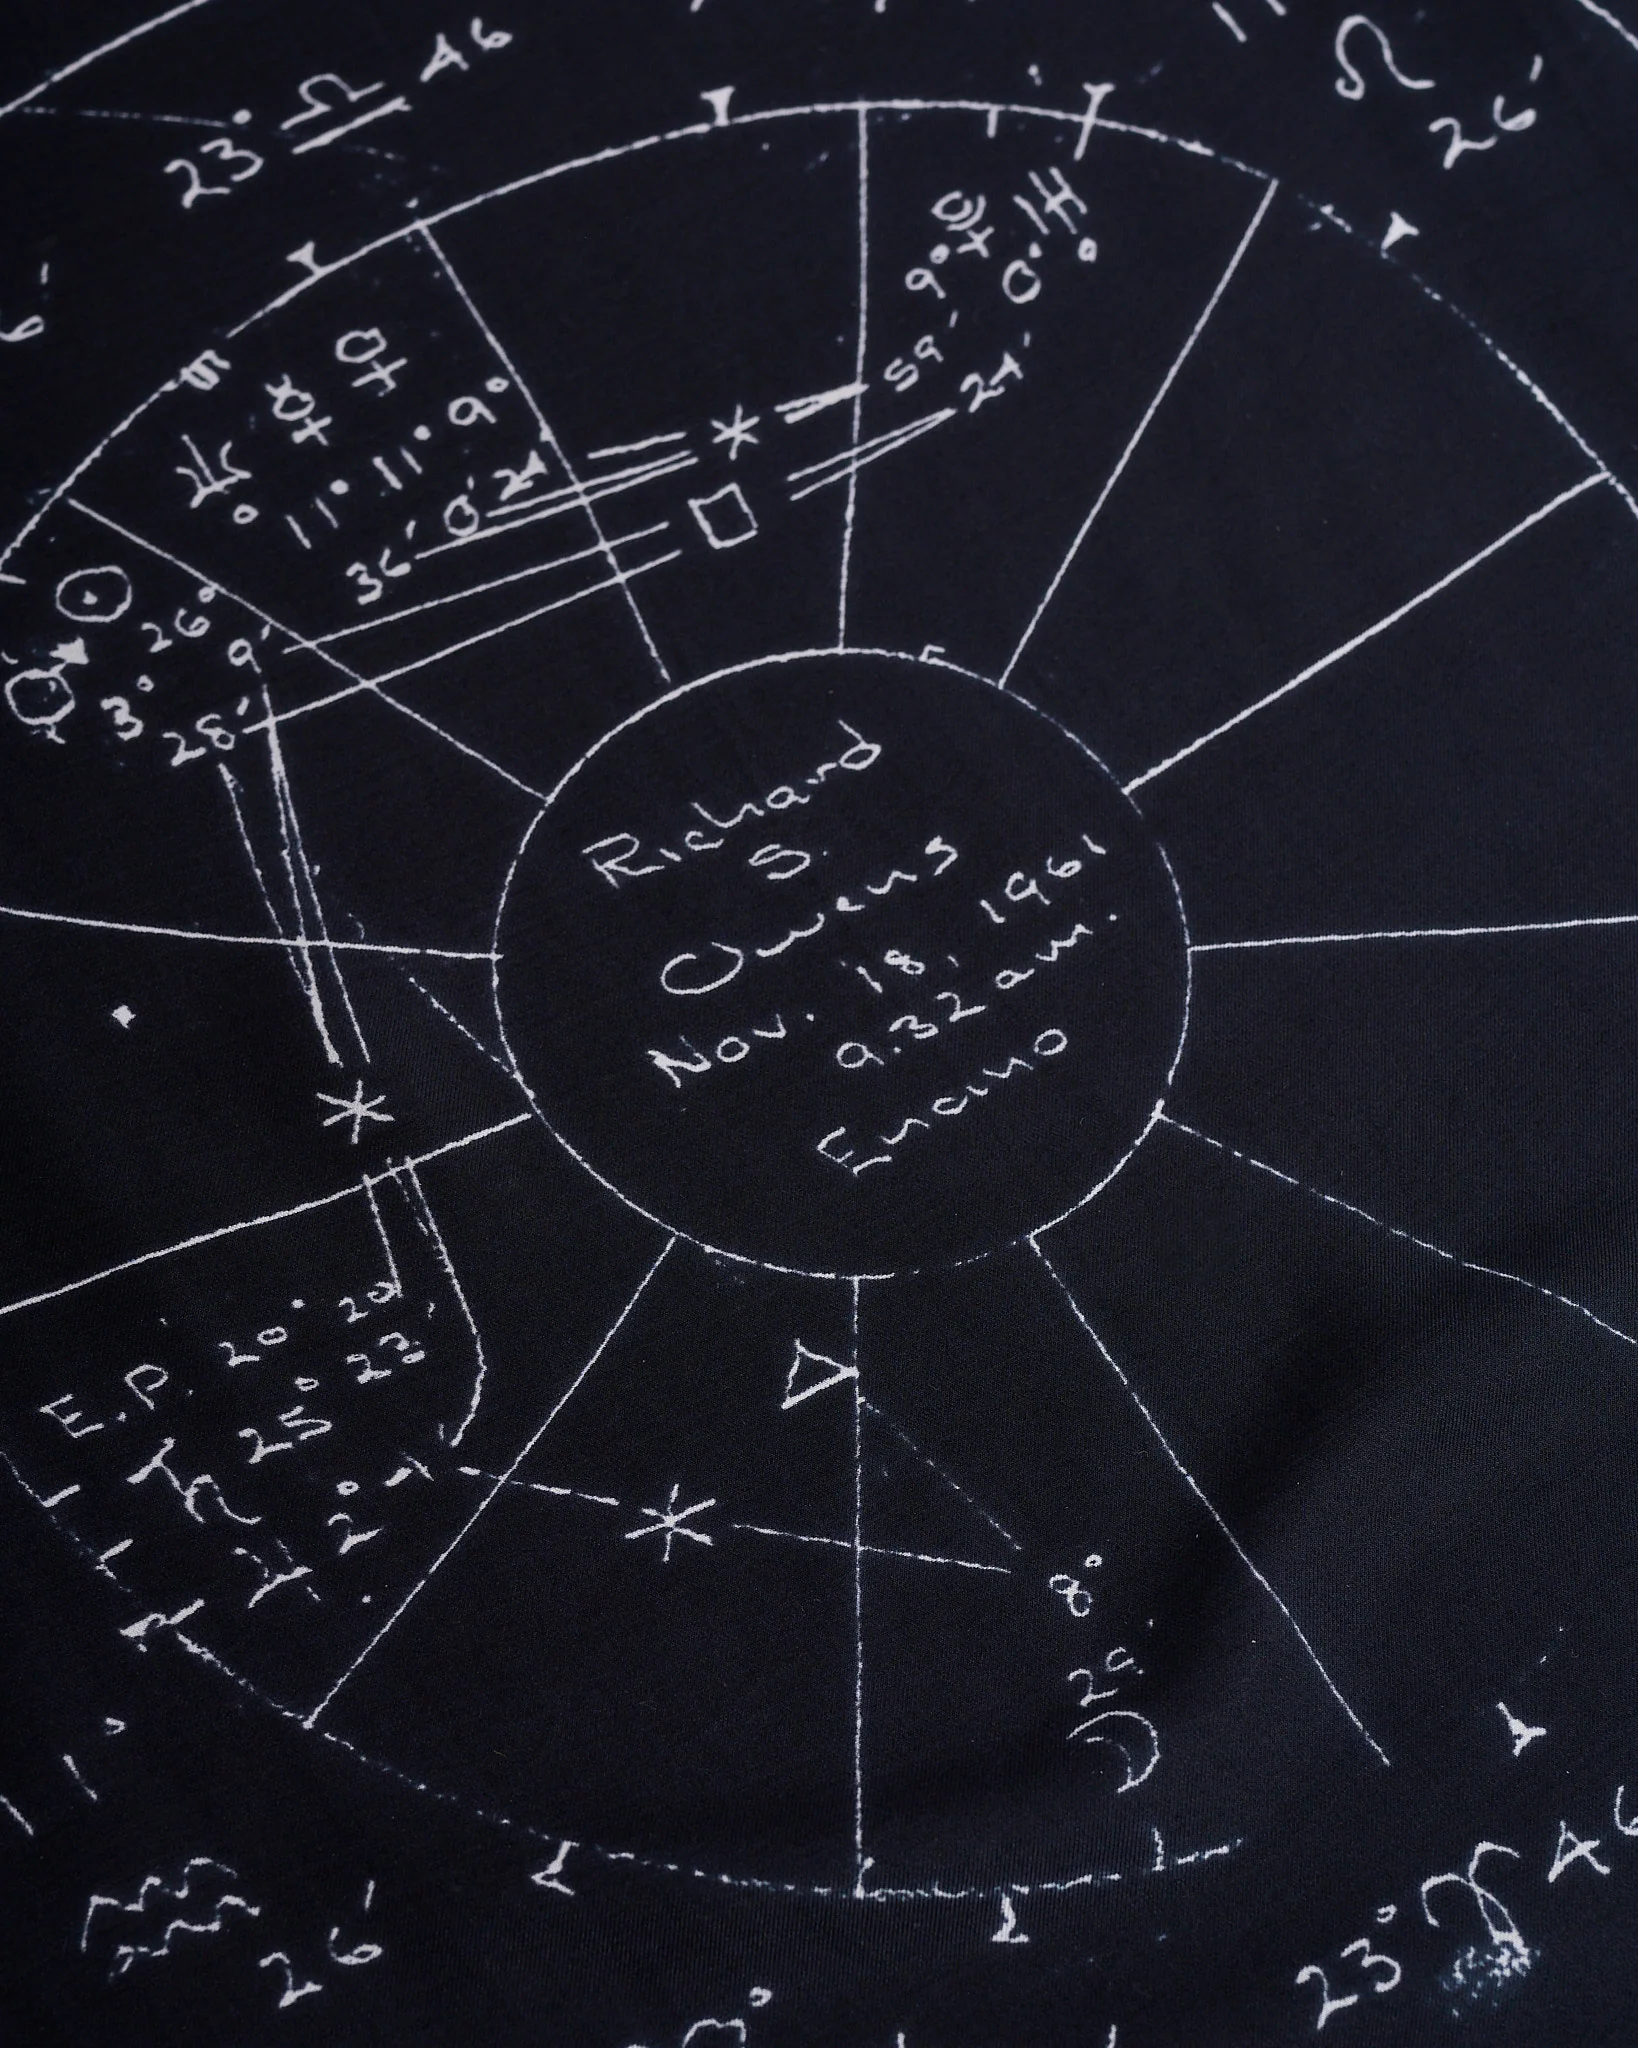 23° ♎ 46
♌
26'
9° 0°
59'
24'
11° 11° 9°
36' 0' 24
26°
9'
3°
28'
Richard
S.
Owens
Nov. 18, 1961
9.32 am.
Encino
E.P. 20° 20'
♄ 25° 23'
♃ 2°
8°
29
11°
♒
26'
23° ♈ 46